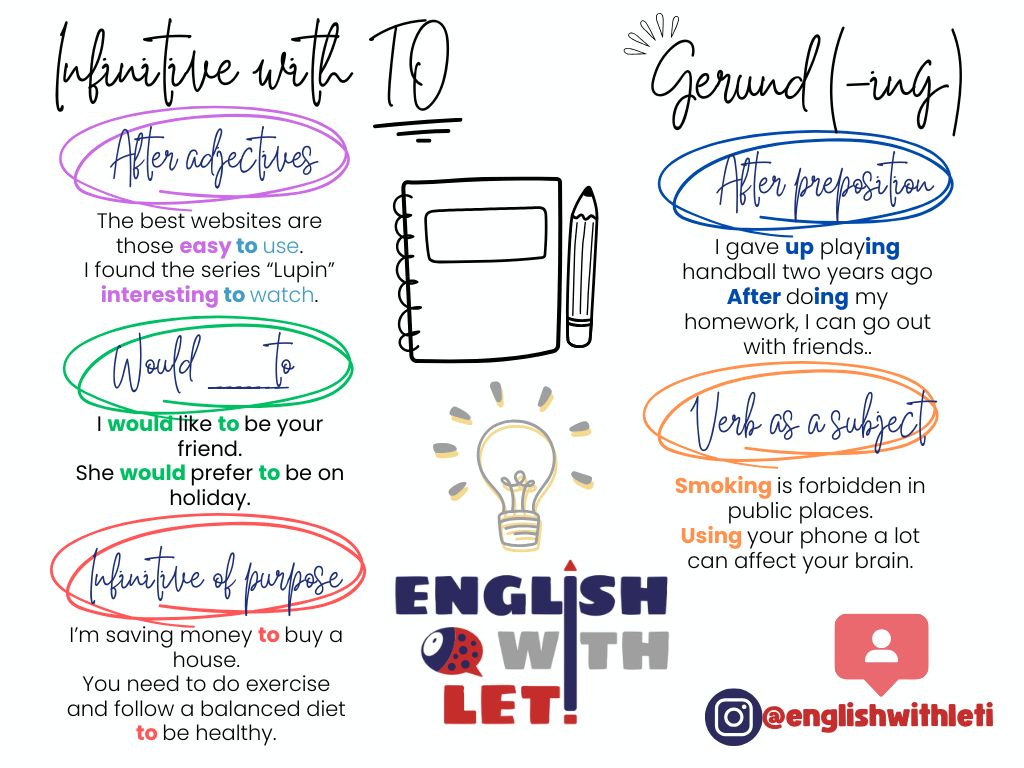 Infinitive with TO
After adjectives
The best websites are
those easy to use.
I found the series “Lupin”
interesting to watch.
Would ______ to
I would like to be your
friend.
She would prefer to be on
holiday.
Infinitive of purpose
I’m saving money to buy a
house.
You need to do exercise
and follow a balanced diet
to be healthy.
Gerund (-ing)
After preposition
I gave up playing
handball two years ago
After doing my
homework, I can go out
with friends..
Verb as a subject
Smoking is forbidden in
public places.
Using your phone a lot
can affect your brain.
ENGLISH
WITH
LETI
@englishwithleti